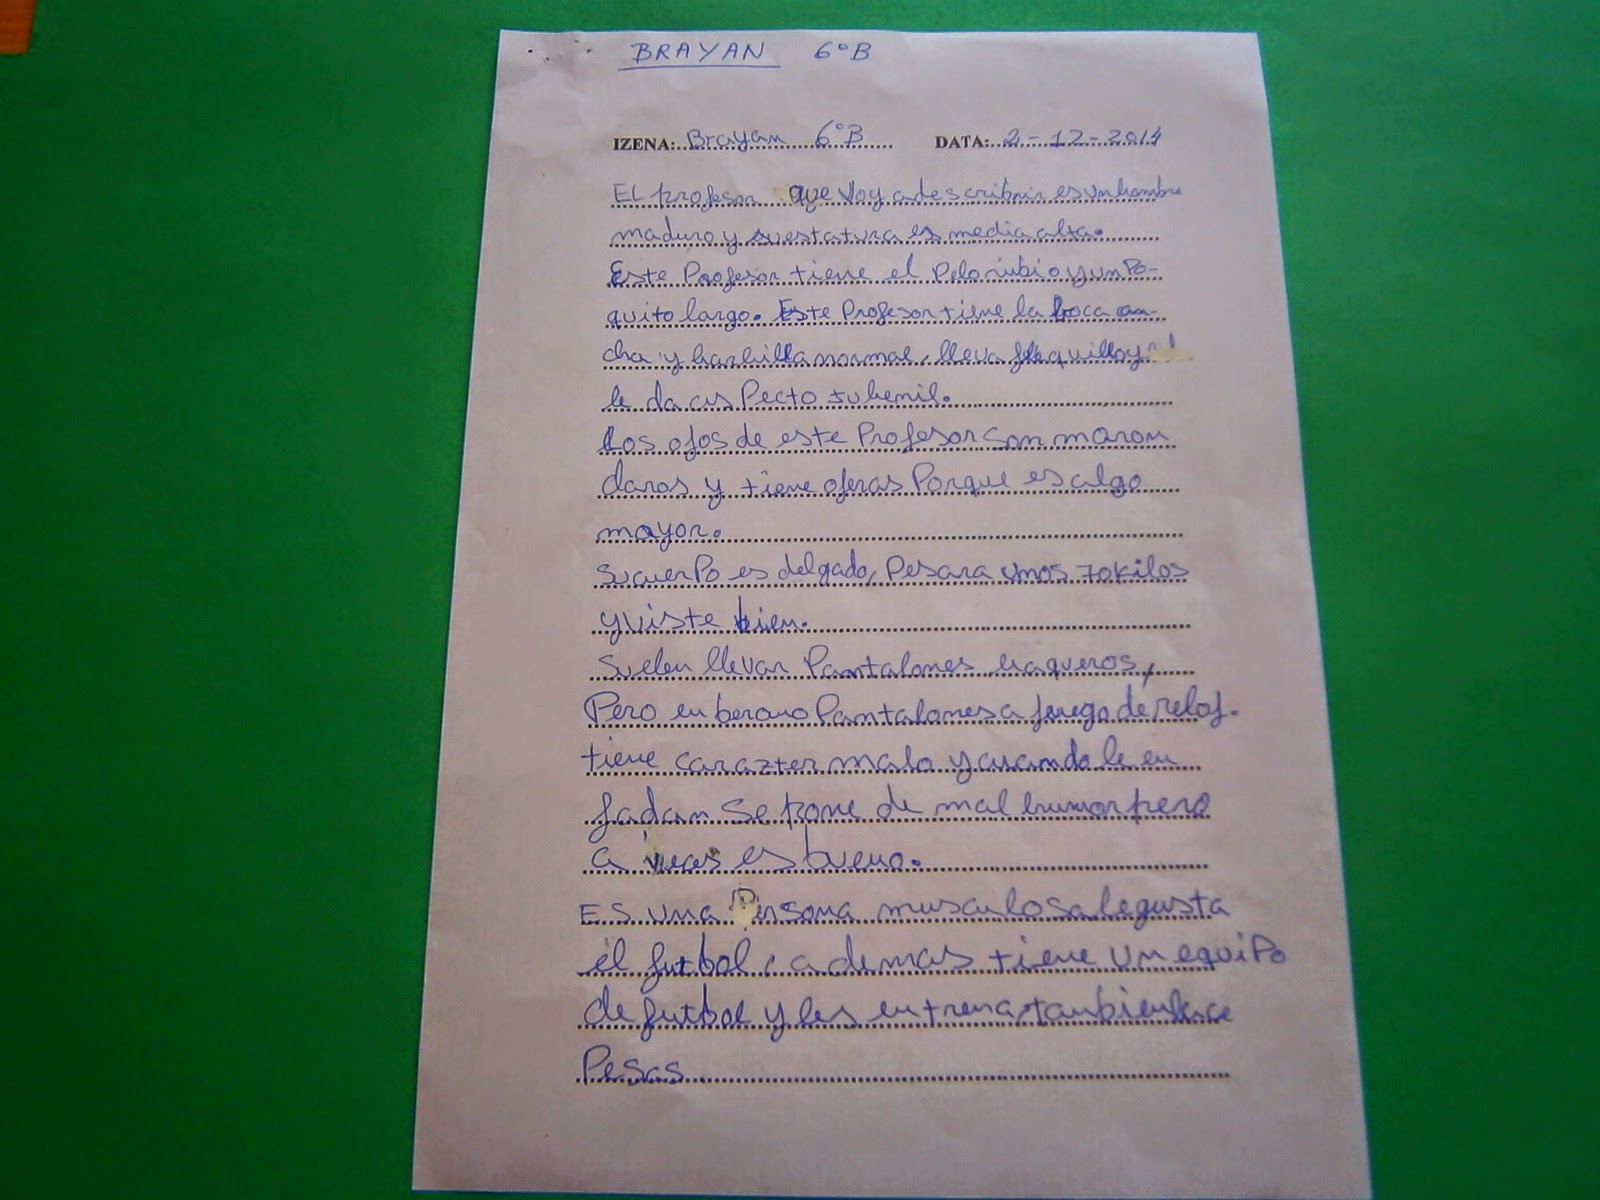 BRAYAN 6ºB
IZENA: Brayan 6ºB DATA: 2-12-2014
EL profesor que voy a describrir es un hombre
maduro y su estatura es media alta.
Este Profesor tiene el Pelo rubio y un Po-
quito largo. Este Profesor tiene la boca an-
cha y barbilla normal, lleva flequillo y
le da as Pecto jubenil.
Los ojos de este Profesor son maron
claros y tiene ojeras Porque es algo
mayor.
Su cuerPo es delgado, Pesara unos 70 kilos
y viste bien.
Suelen llevar Pantalones baqueros,
Pero en berano Pantalones a juego de reloj.
tiene carazter malo y cuando le en
fadan se pone de mal humor pero
a veces es bueno.
ES una Persona musculosa le gusta
el futbol, ademas tiene un equiPo
de futbol y les entrena, tanbien hace
Pesas